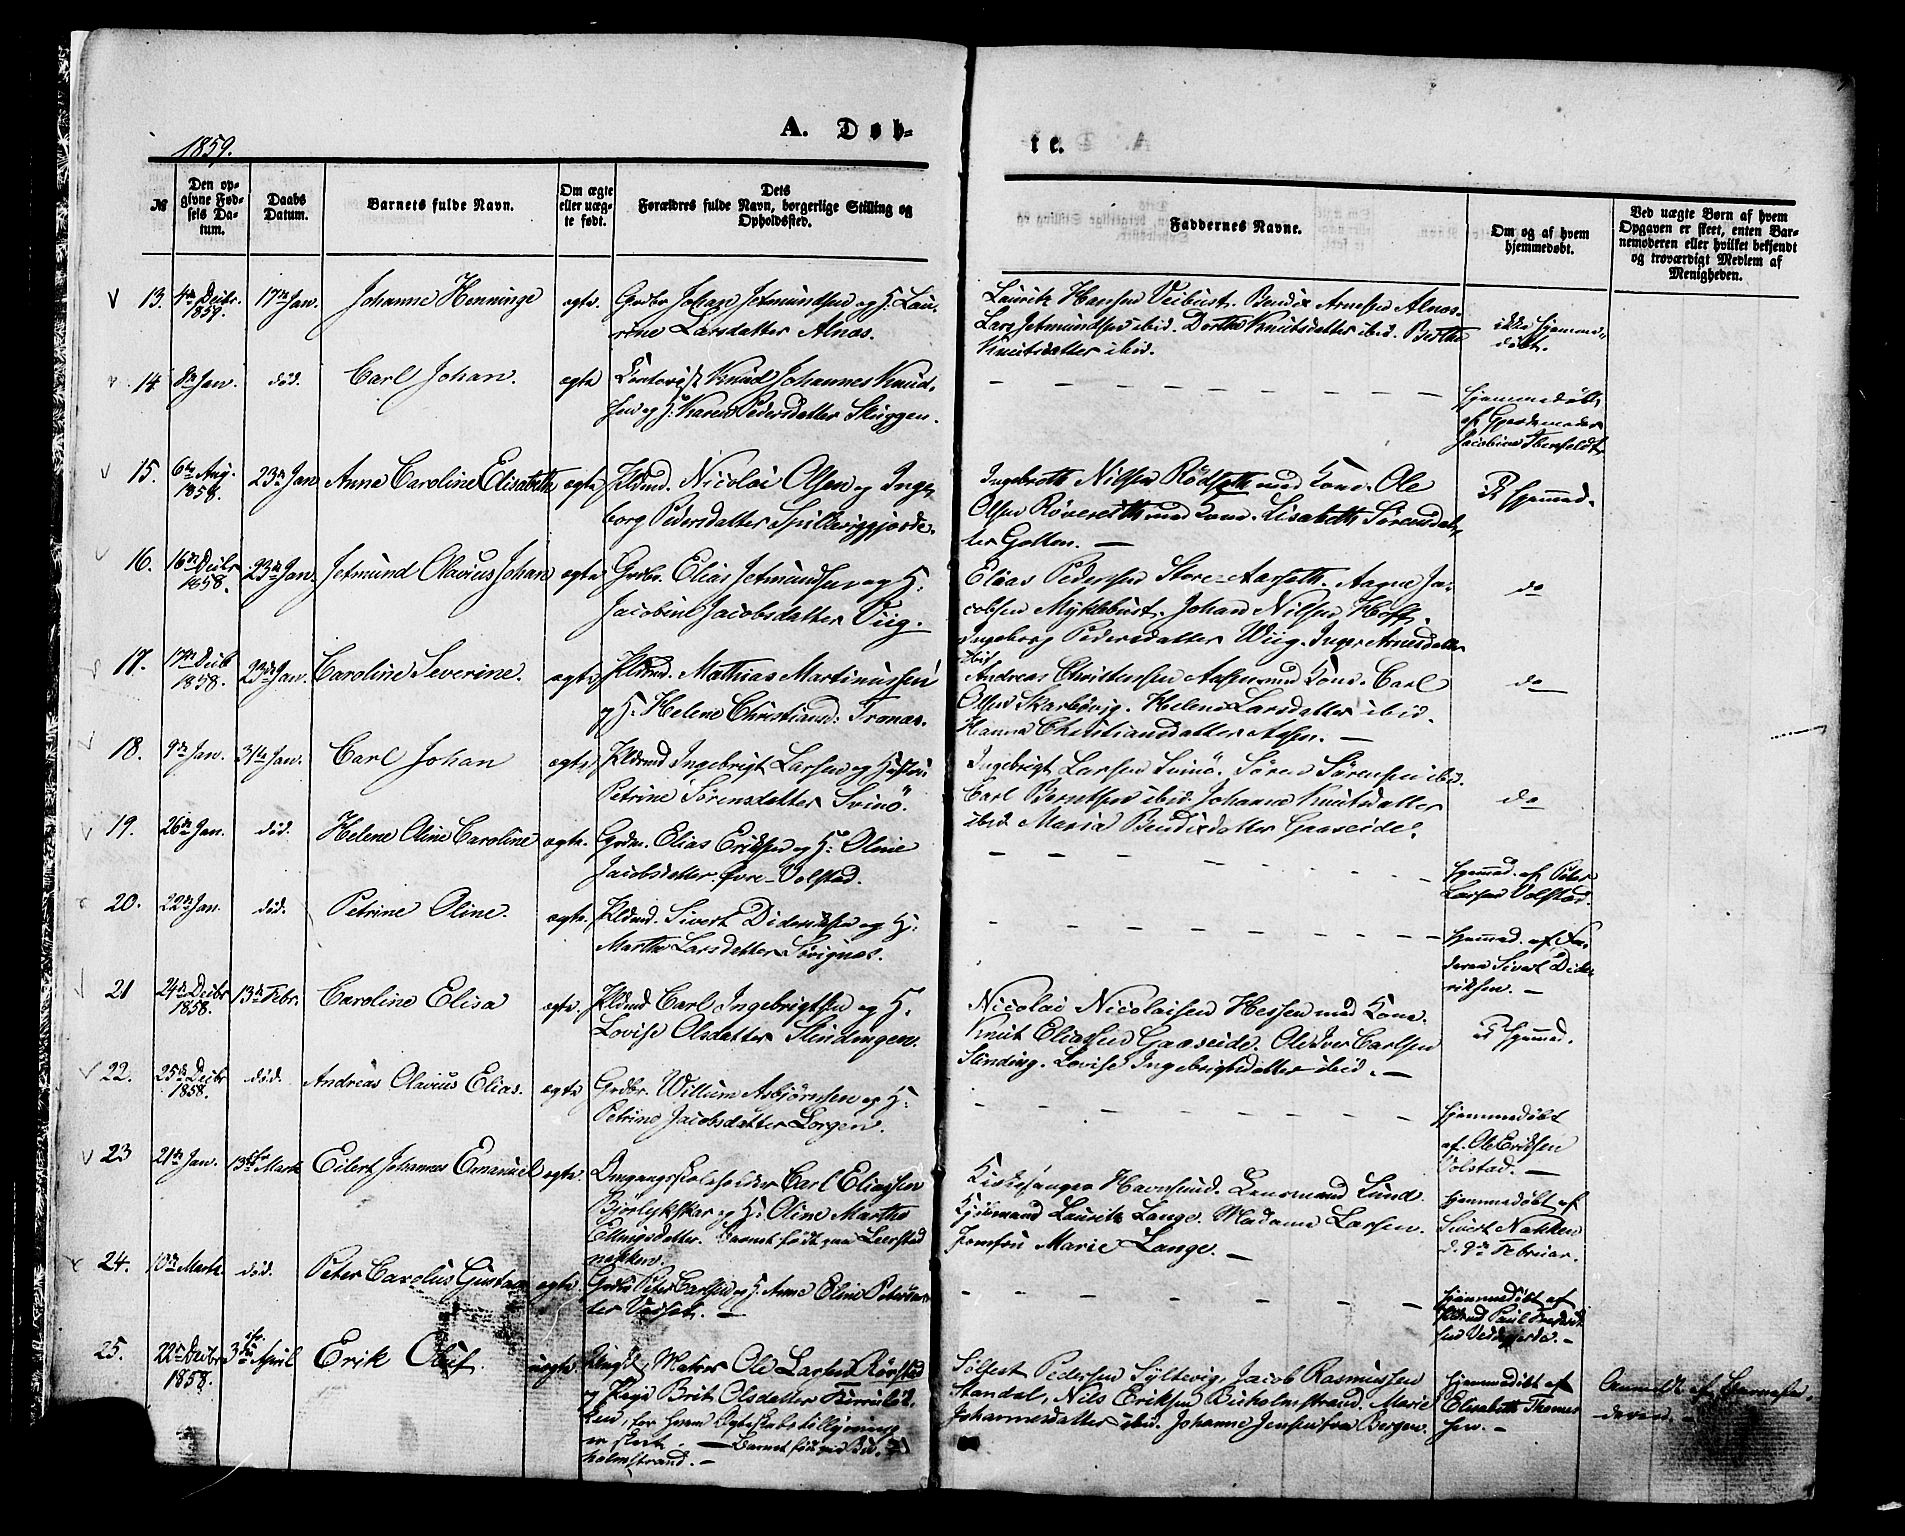 1859.
A. Døb-
te.
№
Den op-
givne Fød-
sels Da-
tum.
Daabs
Datum.
Barnets fulde Navn.
Om ægte
eller uæg-
te født.
Dets
Forældres fulde Navn, borgerlige Stilling og
Opholdssted.
Faddernes Navne.
Om og af hvem
hjemmedøbt.
Ved uægte Børn af hvem
Opgaven er skeet, enten Bar-
nemoderen eller hvilket bekjendt
og troværdigt Medlem af
Menigheden.
13.
4de Decbr.
1859.
17de Jan.
Johanne Henninge
ægte.
Grdbr Johan Jetmundsen og H. Lau-
rine Larsdatter Alnæs.
Lauritz Hansen Veibust. Bendix Arnesen Alnæs.
Lars Jetmundsen ibid. Dorthe Knutsdatter ibid. Berthe
Knutsdatter ibid.
ikke hjemme-
døbt.
14
8de Jan.
død.
Carl Johan.
ægte
Knud Johannes Knud-
sen og H. Karen Pedersdatter Skuggen.
hjemmedøbt
af Gjordemoder
Jacobine
15.
6te Aug.
1858.
23de Jan
Anne Caroline Elisabeth
ægte
Nicolai Olsen og Inge-
borg Pedersdatter
Ingebreth Nilsen Rödseth med Kone. Ole
Olsen med Kone. Lisabeth Sörensdat-
ter Golten. —
hjemmed.
16.
16de Decbr
1858.
23de Jan.
Jetmund Olavius Johan
ægte
Grdbr. Elias Jetmundsen og H.
Jacobine Jacobsdatter Viig.
Elias Pedersen Store-Aarseth. Aagne Ja-
cobsen Myklebust. Johan Nilsen Hoff.
Ingeborg Pedersdatter Wiig. Inger Arnesdatter
ibid
do
17.
17de Decb
1858.
23de Jan.
Caroline Severine.
ægte
Mathias Martinussen
og H. Helene Christiansd: Tranæs.
Andreas Christensen Aasen med Kone. Carl
Olsen Skarbövig. Helene Larsdatter ibid.
Hanna Christiansdatter Aasen. —
do
18.
9de Jan.
31te Jan.
Carl Johan
ægte
Ingebrigt Larsen og Hustru
Petrine Sörensdatter Svinö.
Ingebrigt Larsen Svinö. Sören Sörensen ibid.
Carl Berntsen ibid. Johanne Knutsdatter
ibid Maria Bendixdatter Gaaseide.
do
19.
26de Jan.
død.
Helene Oline Caroline
ægte.
Elias Eriksen og H. Oline
Jacobsdatter Øvre-Volstad.
hjemmed. af Peter
Larsen Volstad.
20.
22de Jan.
død.
Petrine Oline.
ægte.
Sivert Dideriksen og H.
Marthe Larsdatter Sövignæs.
hjemmed. af Fa-
deren Sivert Dide-
riksen. —
21
24de Decbr
1858.
13de Febr.
Caroline Elisa
ægte.
Carl Ingebrigtsen og H.
Lovise Olsdatter Slindingen.
Nicolai Nicolaisen Hessen med Kone.
Knut Eliassen Gaaseide. Ole Iver Carlsen
Slinding. Lovise Ingebrigtsdatter ibid. —
hjemmed.
22.
25de Decbr
1858.
død.
Andreas Olavius Elias.
ægte
Grdbr. Willum Asbjörnsen og H.
Petrine Jacobsdatter Lorgen.
hjemmedøbt
af. Ole Eriksen
Volstad. —
23
21de Jan.
13de Marts
Eilert Johannes Emanuel
ægte.
Omgangsskoleholder Carl Eliassen
Björlykskar og H. Oline Marthe
Ellingsdatter. Barnet födt paa Leerstad
nakken.
Kirkesanger Havnsund. Lensmand Sund.
Lauritz Lange. Madame Larsen.
Jomfru Marie Lange. —
hjemmedøbt af
Sivert Nakken
d. 9de Februar.
24.
10de Marts
død.
Peter Carolus Gustav
ægte
Peter Carlsen og H. Anne Oline Petersdat-
ter
hjemmedøbt af
Paul Frederik-
sen
25.
22de Decbr
1858.
3die April
Erik Oluf.
uægte.
Matros Ole Larsen Rörstad
og Pige Brit Olsdatter
for hvem Ægteskabstillysning
er skeet. — Barnet födt ved Bu-
holmstrand. —
Söfest Pedersen Syltevig, Jacob Rasmussen
Standal, Nils Eriksen Buholmstrand. Marie
Johannesdatter ibid. Johanne Jensen fra Bergen.
hjemmedøbt af
Elisabeth Thomes-
sen. —
Anmeldt af Barnefa-
deren. —